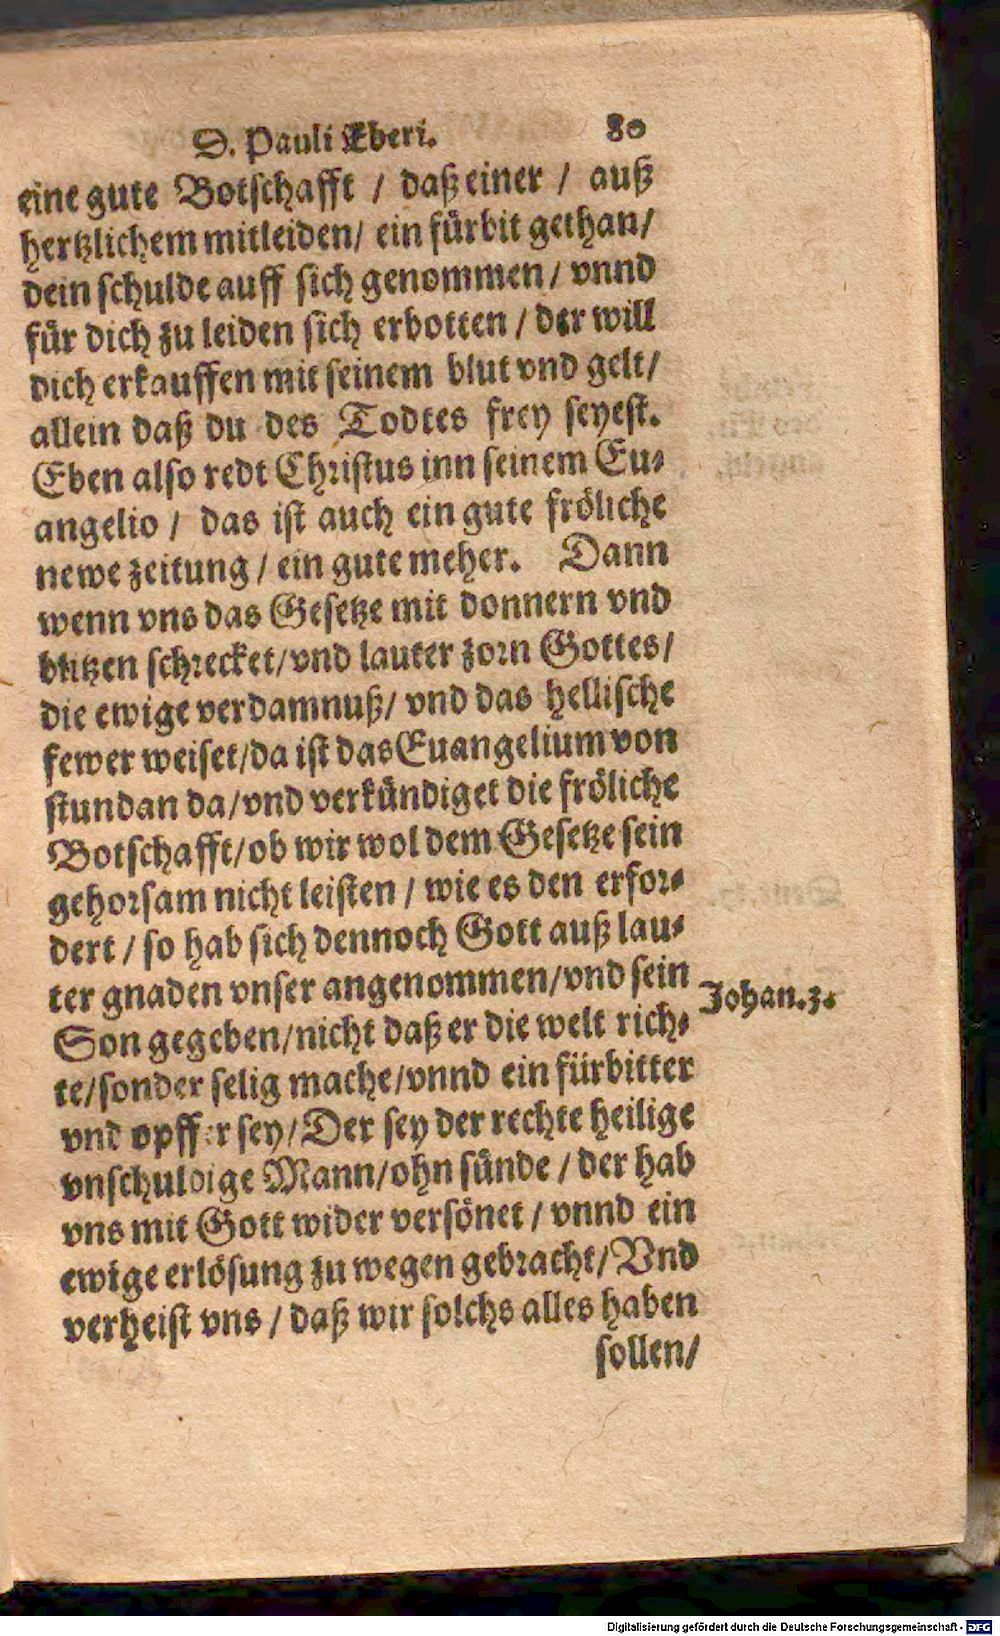 D. Pauli Eberi. 80
eine gute Botschafft / daß einer / auß
hertzlichem mitleiden/ ein fürbit gethan/
dein schulde auff sich genommen/ vnnd
für dich zu leiden sich erbotten / der will
dich erkauffen mit seinem blut vnd gelt/
allein daß du des Todtes frey seyest.
Eben also redt Christus inn seinem Eu⸗
angelio / das ist auch ein gute fröliche
newe zeitung / ein gute meher. Dann
wenn vns das Gesetze mit donnern vnd
blitzen schrecket/vnd lauter zorn Gottes/
die ewige verdamnuß/ vnd das hellische
fewer weiset/da ist das Euangelium von
stundan da/vnd verkündiget die fröliche
Botschafft/ob wir wol dem Gesetze sein
gehorsam nicht leisten / wie es den erfor⸗
dert / so hab sich dennoch Gott auß lau⸗
ter gnaden vnser angenommen/vnd sein
Johan.3.
Son gegeben/nicht daß er die welt rich⸗
te/sonder selig mache/vnnd ein fürbitter
vnd opffer sey/Der sey der rechte heilige
vnschuldige Mann/ohn sünde / der hab
vns mit Gott wider versönet / vnnd ein
ewige erlösung zu wegen gebracht/Vnd
verheist vns / daß wir solchs alles haben
sollen/
Digitalisierung gefördert durch die Deutsche Forschungsgemeinschaft - DFG